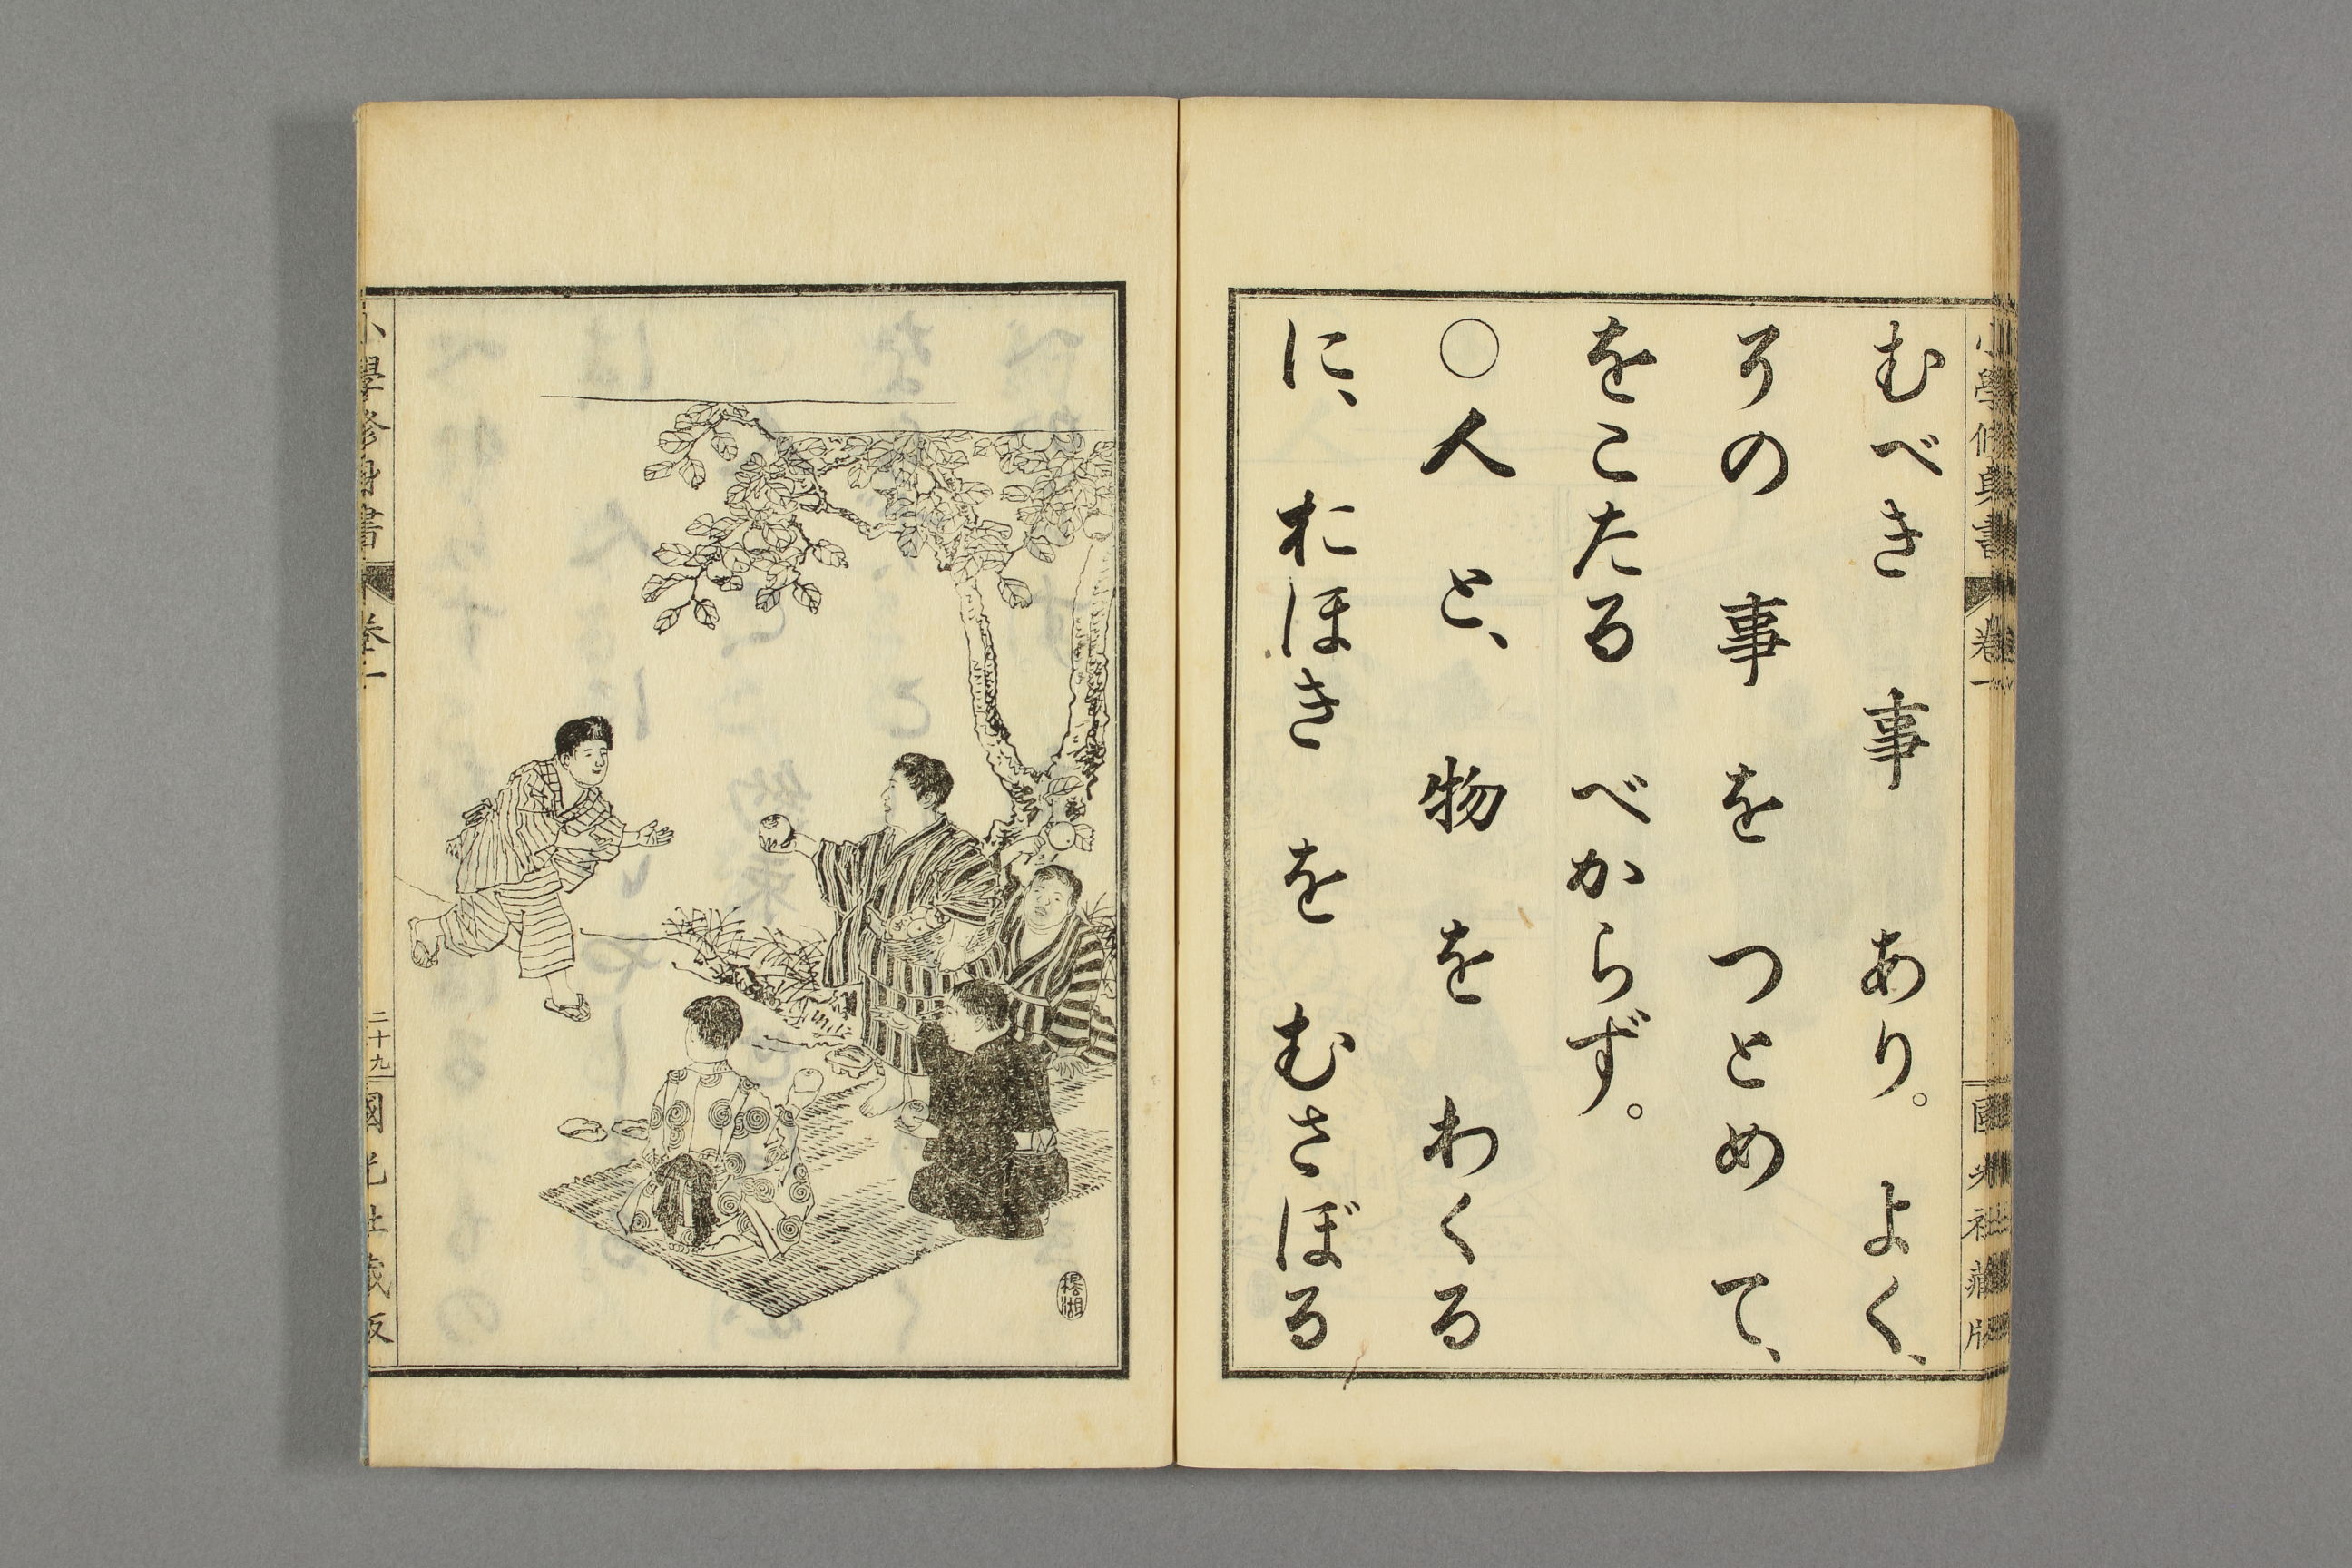 小學修身書
卷一
國光社藏版
むべき 事 あり。よく、
その 事 を つとめ て、
をこたる べからず。
○人 と、物 を わくる
に、おほき を むさぼる
小學修身書
卷一
二十九
國光社藏版